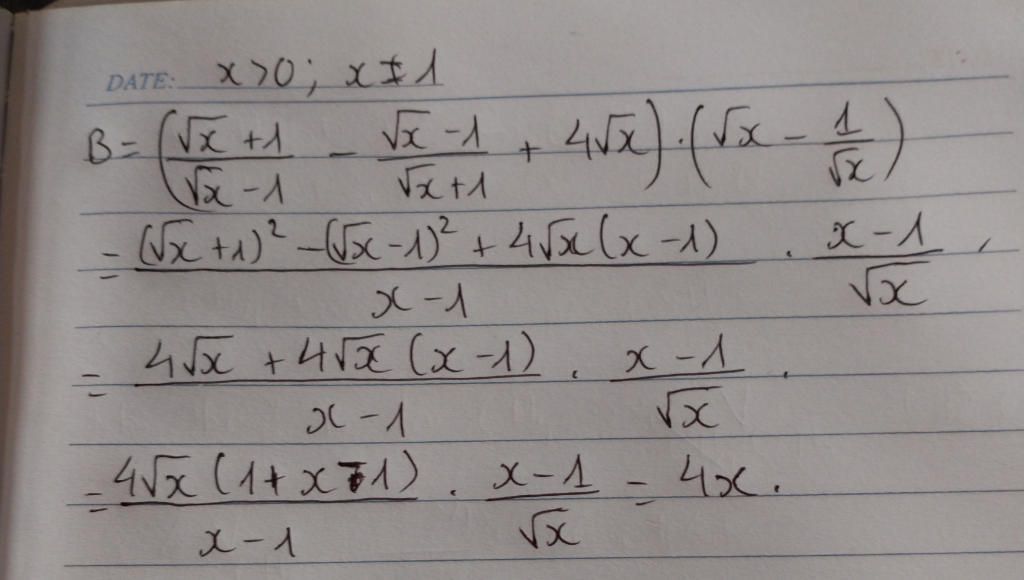 DATE: x > 0 ; x ≠ 1
B = ((√x + 1)/(√x - 1) - (√x - 1)/(√x + 1) + 4√x) · (√x - 1/√x)
= ((√x + 1)² - (√x - 1)² + 4√x(x - 1))/(x - 1) · (x - 1)/√x ,
= (4√x + 4√x(x - 1))/(x - 1) · (x - 1)/√x .
= (4√x(1 + x - 1))/(x - 1) · (x - 1)/√x = 4x .